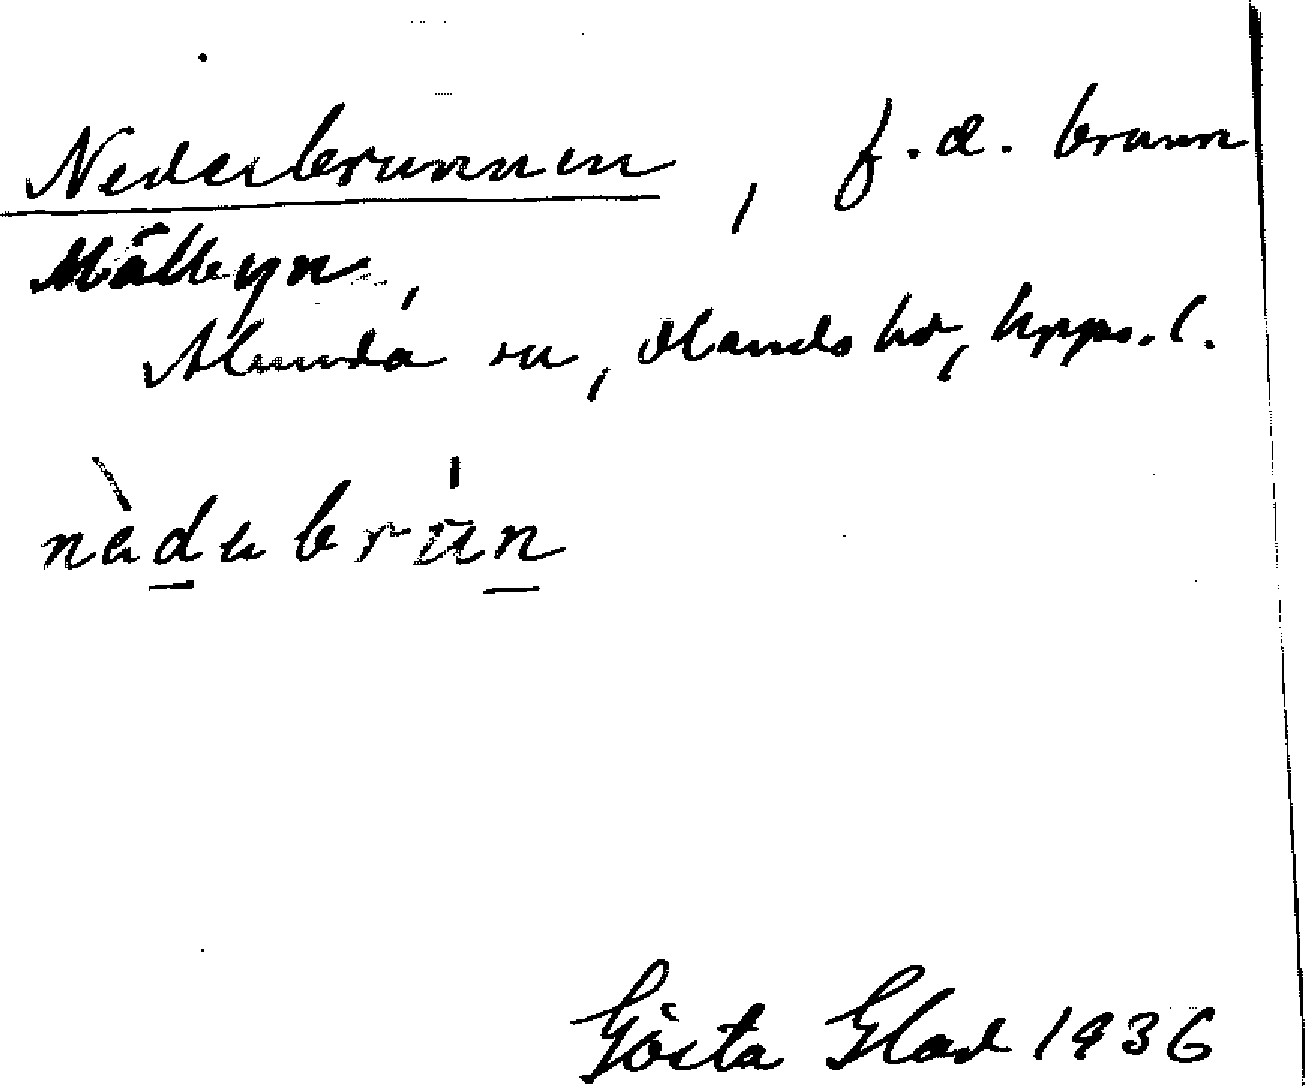 Nederbrunnen, f.d. brunn
Målbyn,
Alunda sn, Olands hd, Upps. l.
nèdebrún
Gösta Glad 1936